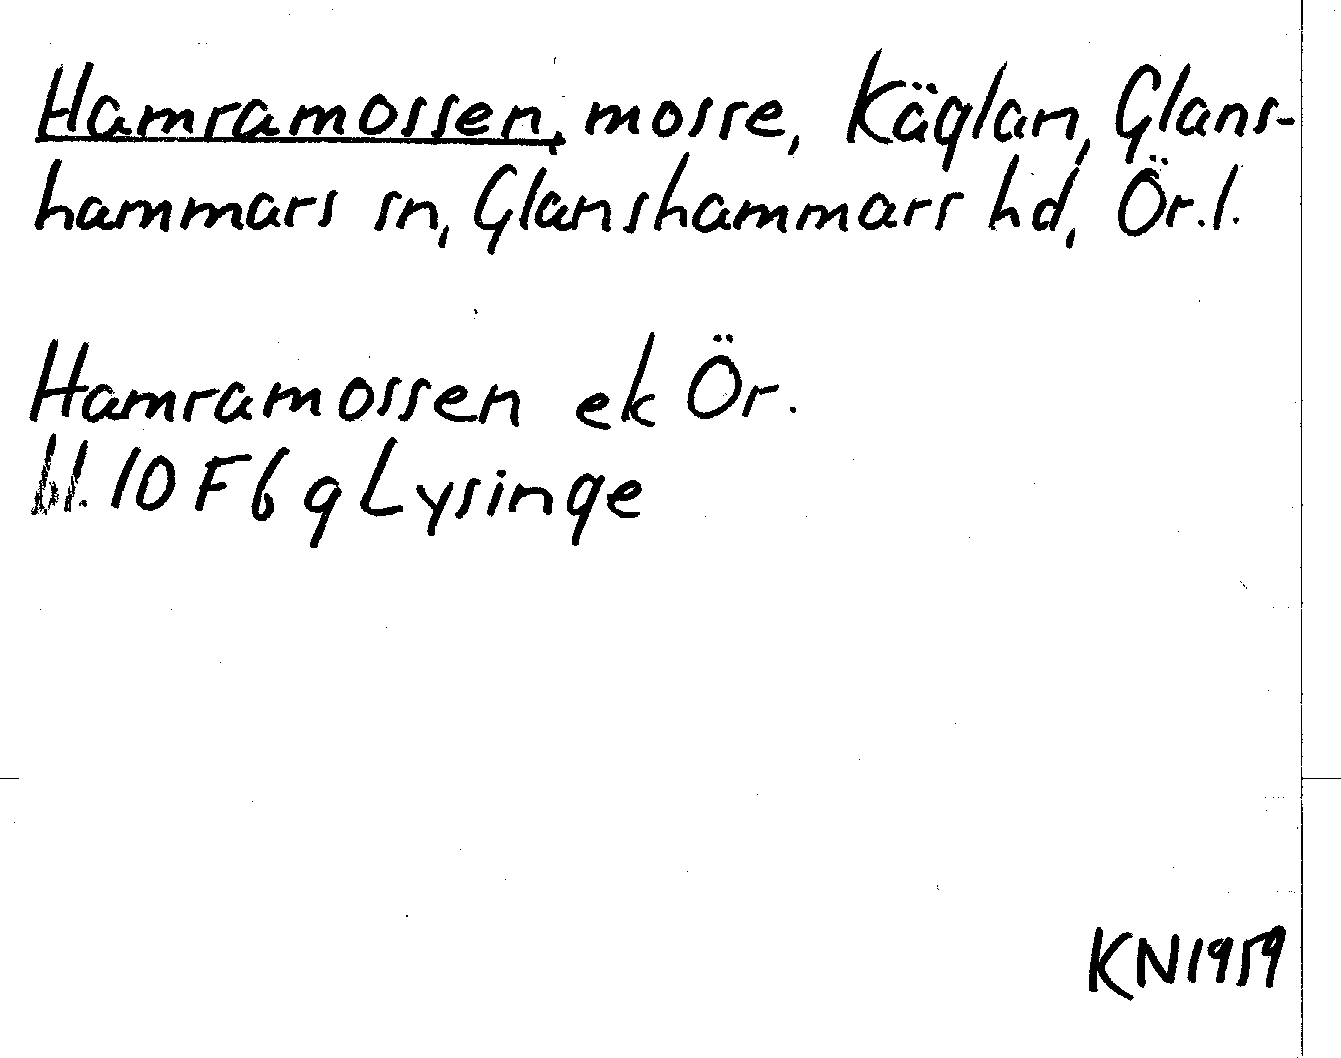 Hamramossen, mosse, Käglan, Glans-
hammars sn, Glanshammars hd, Ör.l.
Hamramossen ek Ör.
bl. 10 F 6 g Lysinge
KN 1959